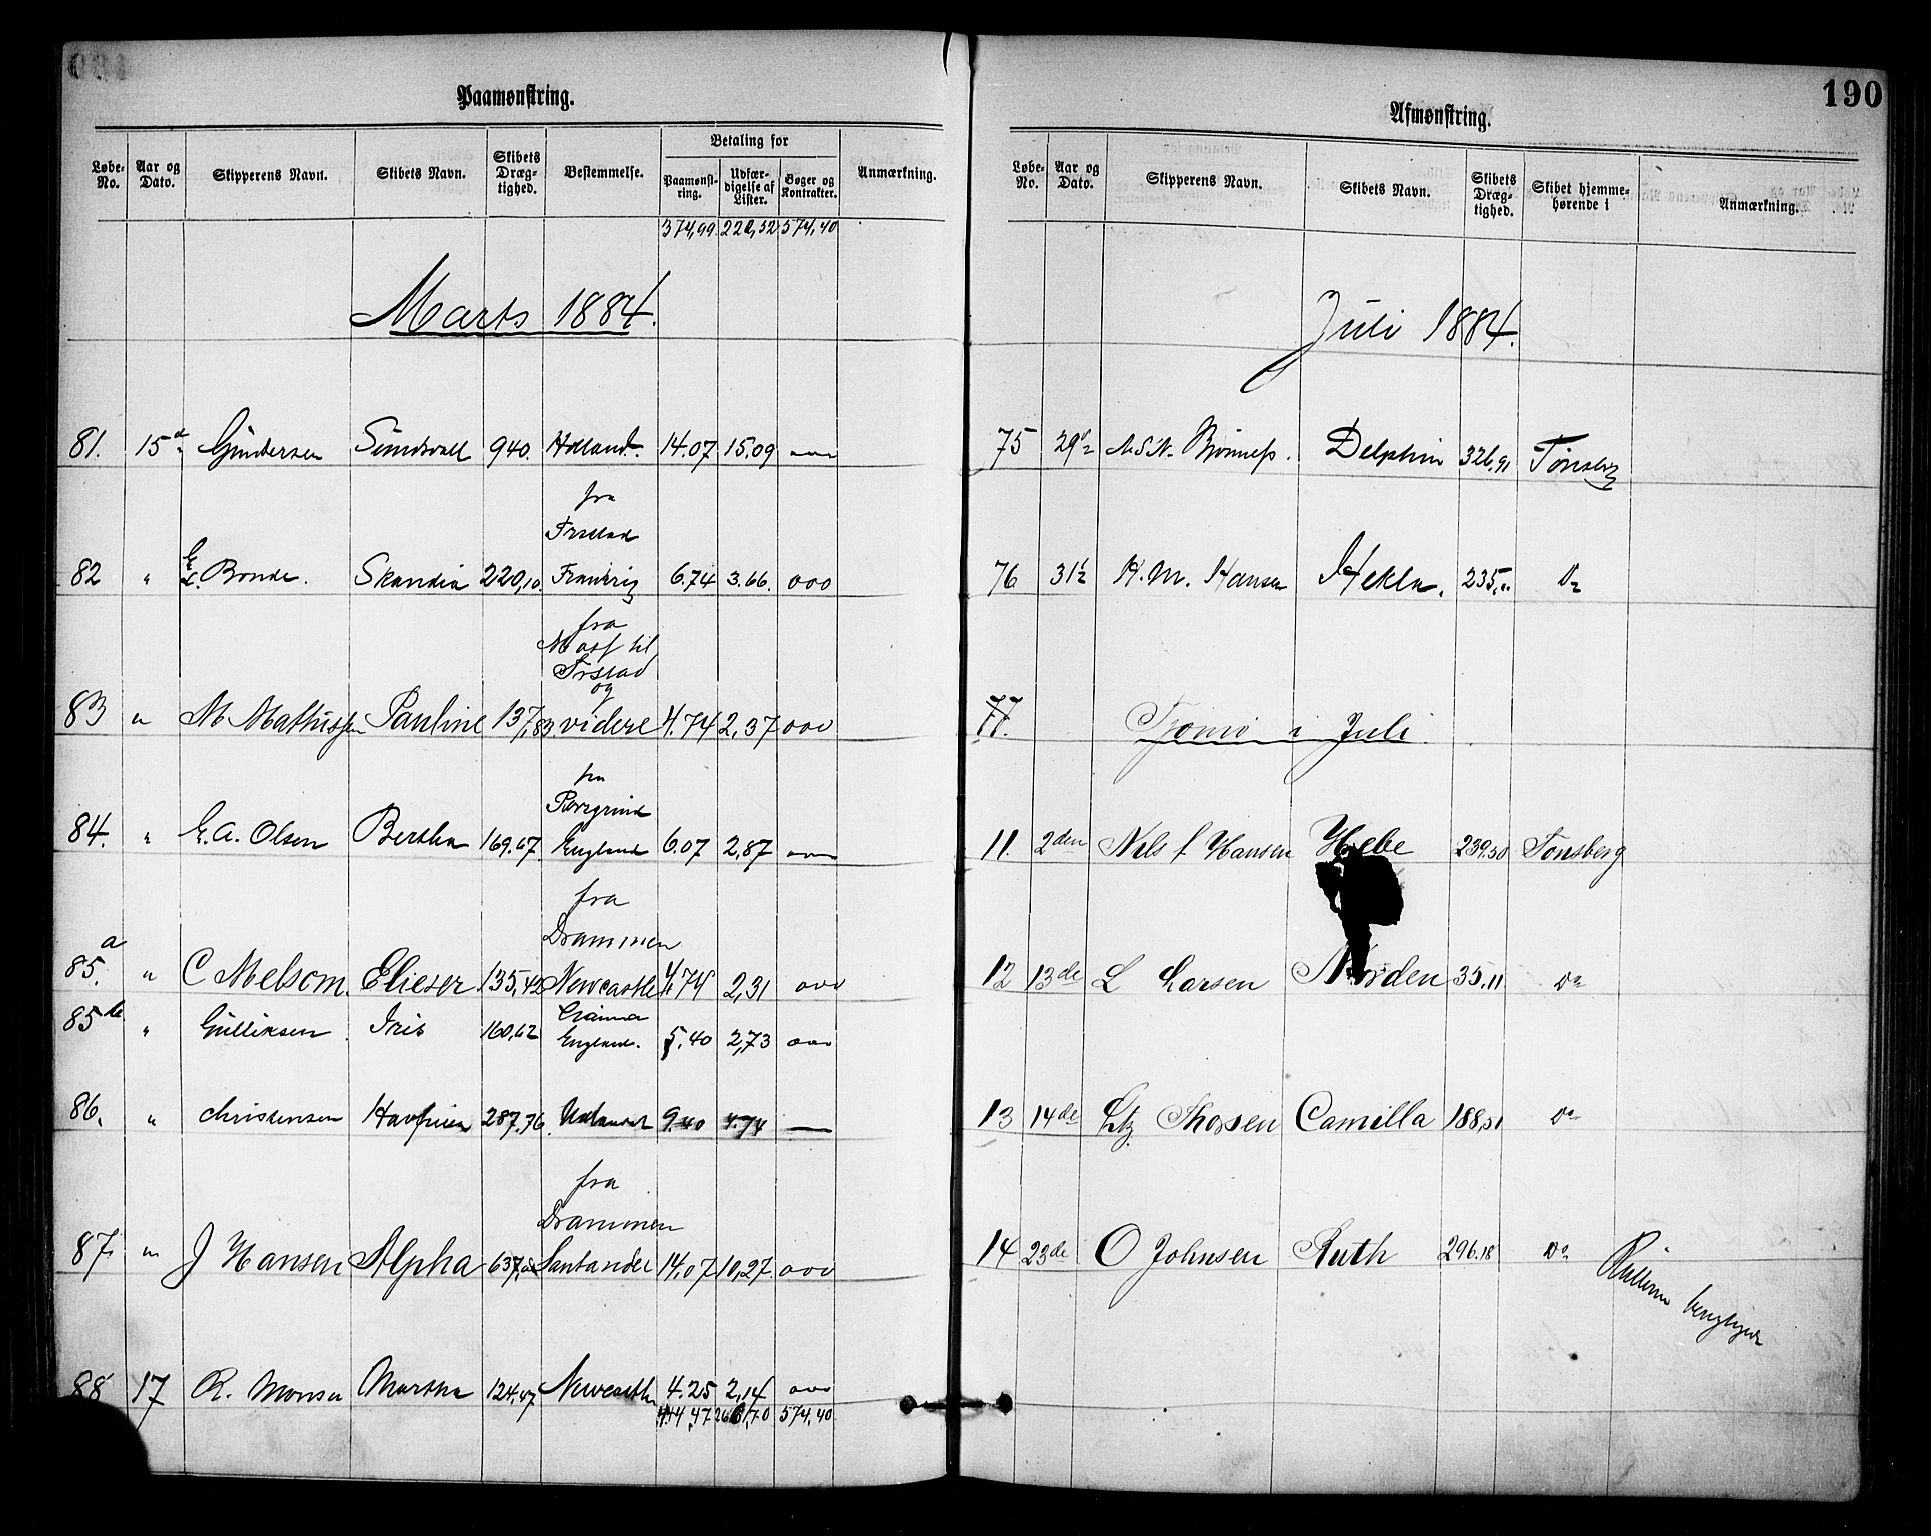 Paamønstring.
Løbe-No. Aar og Dato. Skipperens Navn. Skibets Navn. Skibets Dræg-tighed. Bestemmelse. Betaling for Anmærkning.
Paamønst-ring. Udfær-digelse af Lister. Bøger og Kontrakter.
374,99 222,52 574,40
Marts 1884.
81. 15d Gundersen Sundsvall 940. Holland. 14.07 15.09 ooo
fra
Frstad
82 " Bonde. Skandia 220,10. Frankrig 6.74 3.66. ooo
fra
Moss til
Frstad
og
83 " M Mathissen Pauline 137,83 videre 4.74 2,37 ooo
fra
Porsgrund
84. " E. A. Olsen Bertha 169.67 England 6.07 2,87 ooo
fra
Drammen
85.a " C Melsom. Elieser 135,42 Newcastle 4.74 2,31 ooo
85b " Gulliksen Iris 160,62 England. 5.40 2,73 ooo
86. " Christensen Havfruen 287,76. Udlandet 9.40 4.74 —
fra
Drammen
87. " J Hansen Alpha 637, Santander 14,07 10,27. ooo
88 17 R. Monsen Martha 124,47 Newcastle 4.25 2,14 ooo
444,47 574,40
190
Afmønstring.
Løbe-No. Aar og Dato. Skipperens Navn. Skibets Navn. Skibets Dræg-tighed. Skibet hjemme-hørende i Anmærkning.
Juli 1884.
75 29de N. Bønness. Delphin 326,91 Tønsberg
76 31te H. M. Hansen Hekla. 235,00 Do
77. Tjømø i Juli
11. 2den Nils f Hansen Hebe 239.50 Tønsberg
12 13de L Larsen Norden 35.11 Do
13 14de Thorsen Camilla 188,51 Do
14 23de O Johnsen Ruth 296.18 Do